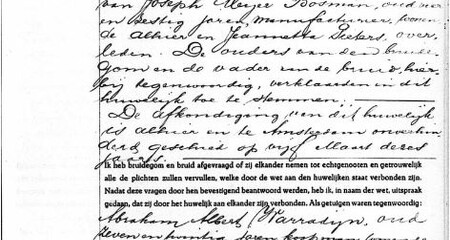 van Joseph Meyer Bosman, oud
en zestig jaren, manufacturier, wonen
de alhier en Jeannetta Peeters, over
leden. De ouders van den bruide
gom en de vader van de bruid, hier
bij tegenwoordig, verklaarden in dit
huwelijk toe te stemmen.
De afkondiging van dit huwelijk
is alhier en te Amsterdam onverhin
derd geschied op vijf Maart dezes
jaars.
Ik heb bruidegom en bruid afgevraagd of zij elkander nemen tot echtgenooten en getrouwelijk
alle de plichten zullen vervullen, welke door de wet aan den huwelijken staat verbonden zijn.
Nadat deze vragen door hen bevestigend beantwoord werden, heb ik, in naam der wet, uitspraak
gedaan, dat zij door het huwelijk aan elkander zijn verbonden. Als getuigen waren tegenwoordig:
Abraham Albert Warradijn, oud
zeven en twintig jaren, koopman